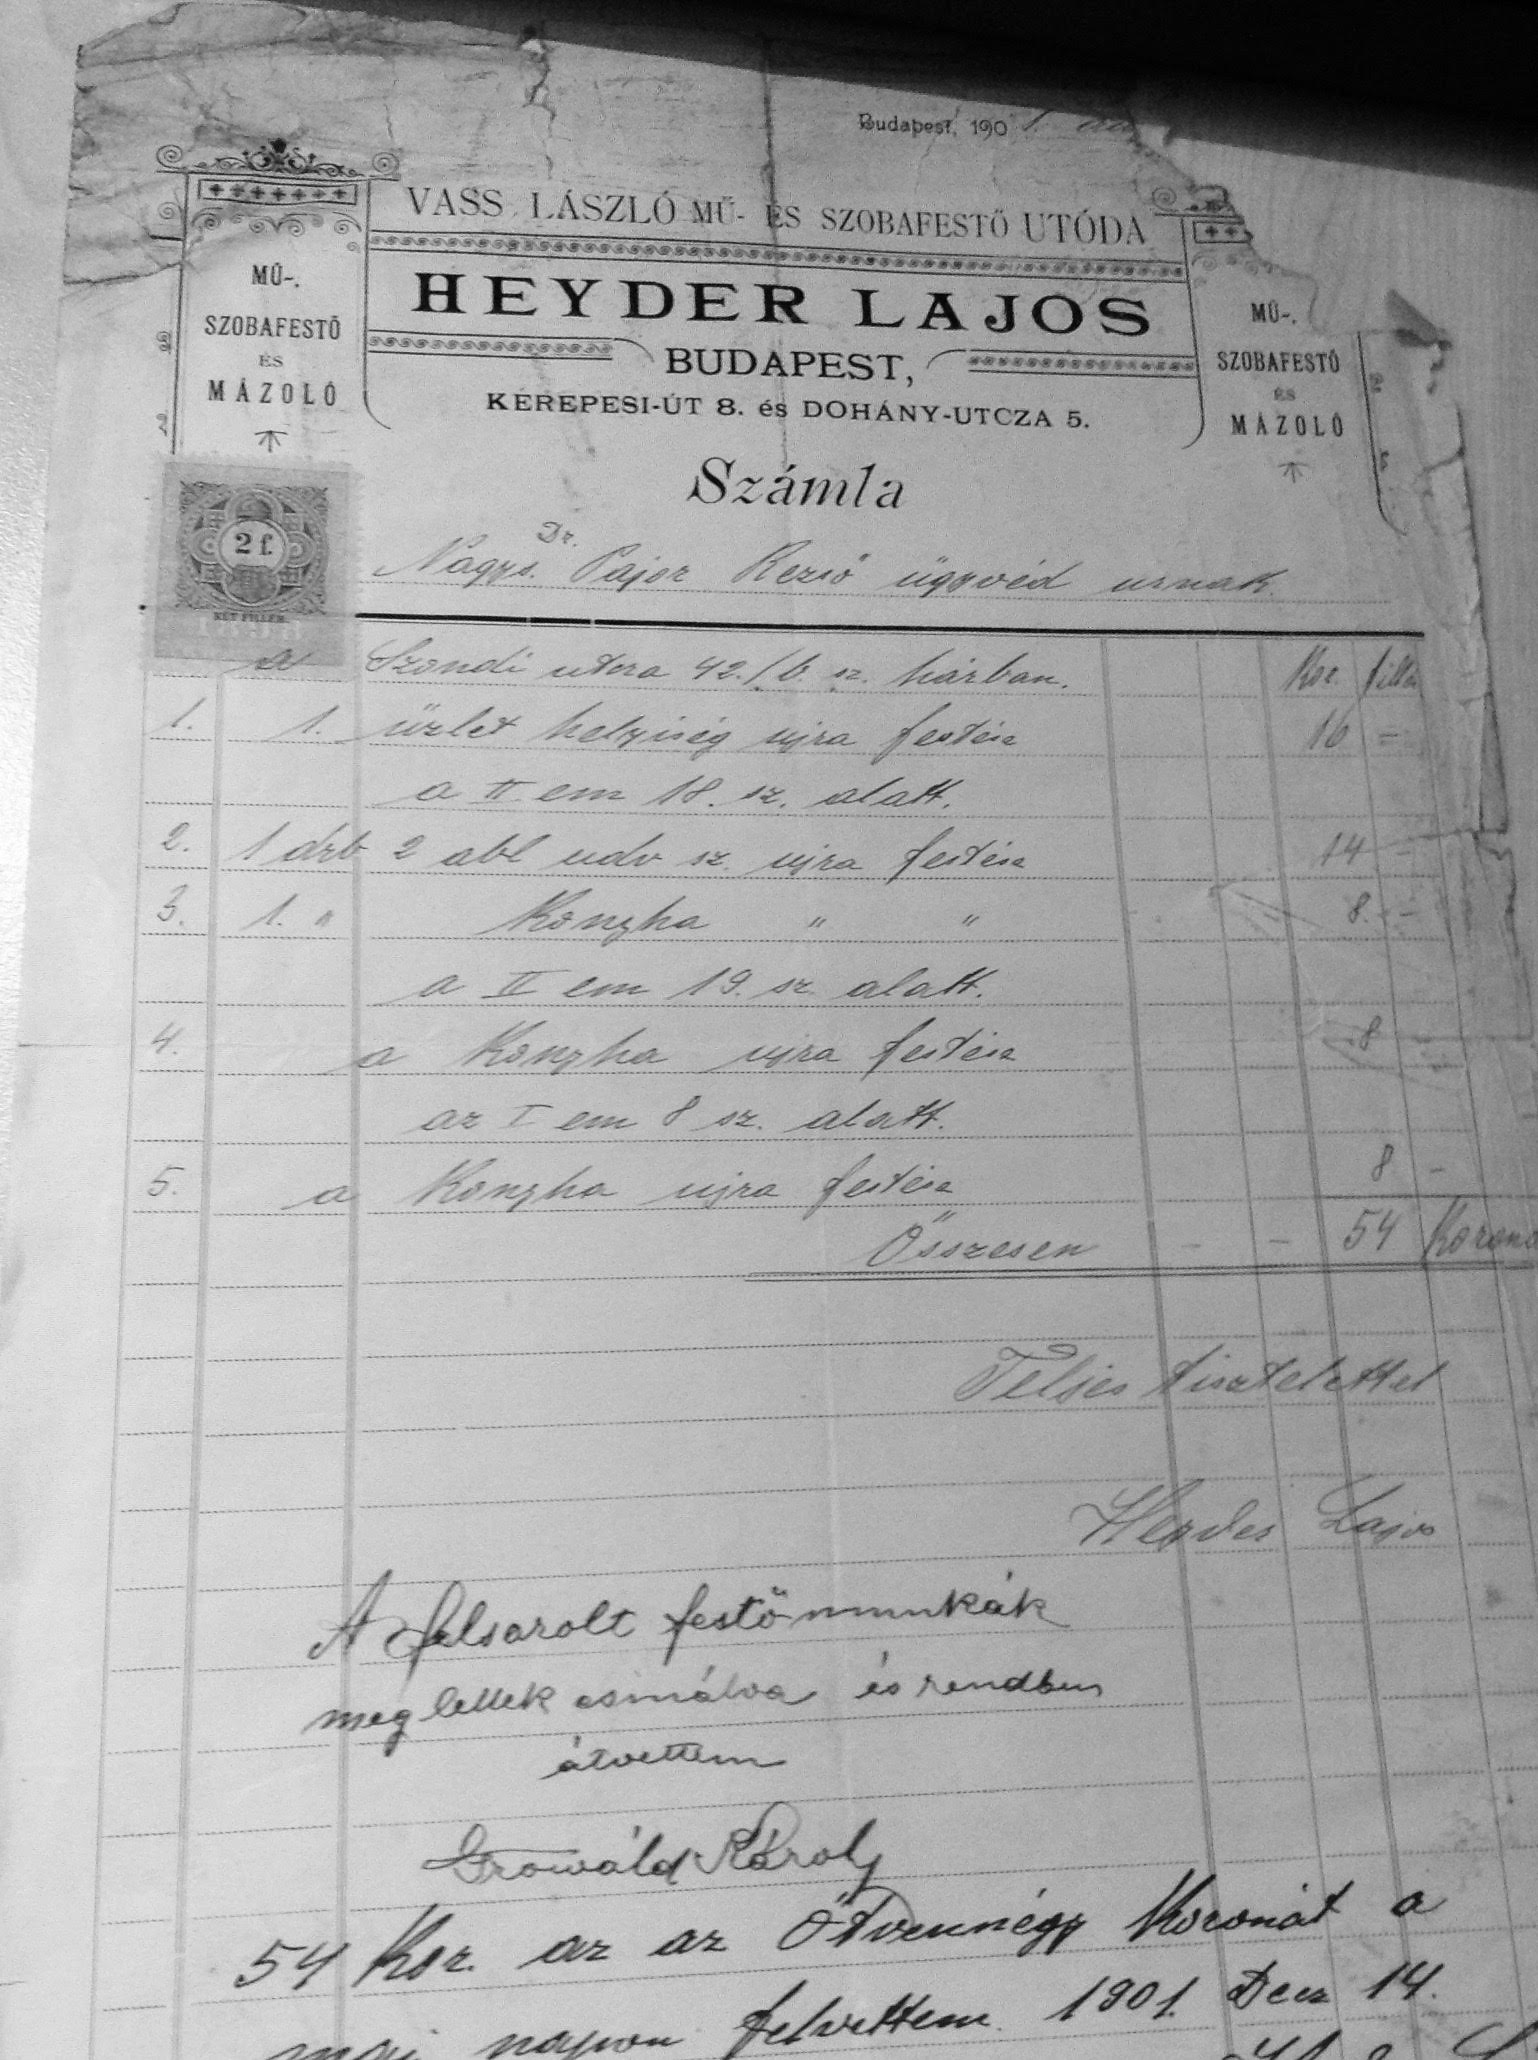 Budapest, 1901.
VASS LÁSZLÓ MŰ- ÉS SZOBAFESTŐ UTÓDA
HEYDER LAJOS
BUDAPEST,
KEREPESI-ÚT 8. és DOHÁNY-UTCZA 5.
MŰ-.
SZOBAFESTŐ
ÉS
MÁZOLÓ
MŰ-.
SZOBAFESTŐ
ÉS
MÁZOLÓ
Számla
2 f.
KÉT FILLÉR.
Nagys. Dr. Pajor Rezső ügyvéd urnak.
a Szondi utcza 42./b. sz. házban. Kor. fillér
1. 1. üzlet helyiség ujra festése 16 =
a II. em 18. sz. alatt.
2. 1 drb 2 abl udv sz. ujra festése 14 -
3. 1. " Konyha " " 8. -
a II em 19. sz alatt.
4. a Konyha ujra festése 8
az I em 8 sz. alatt.
5. a Konyha ujra festése 8 -
Összesen - - 54 Korona
Teljes tisztelettel
Heyder Lajos
A felsorolt festőmunkák
meg lettek csinálva és rendben
átvettem
Károly
54 Kor. az az Ötvennégy Koronát a
mai napon felvettem. 1901. Decz 14.